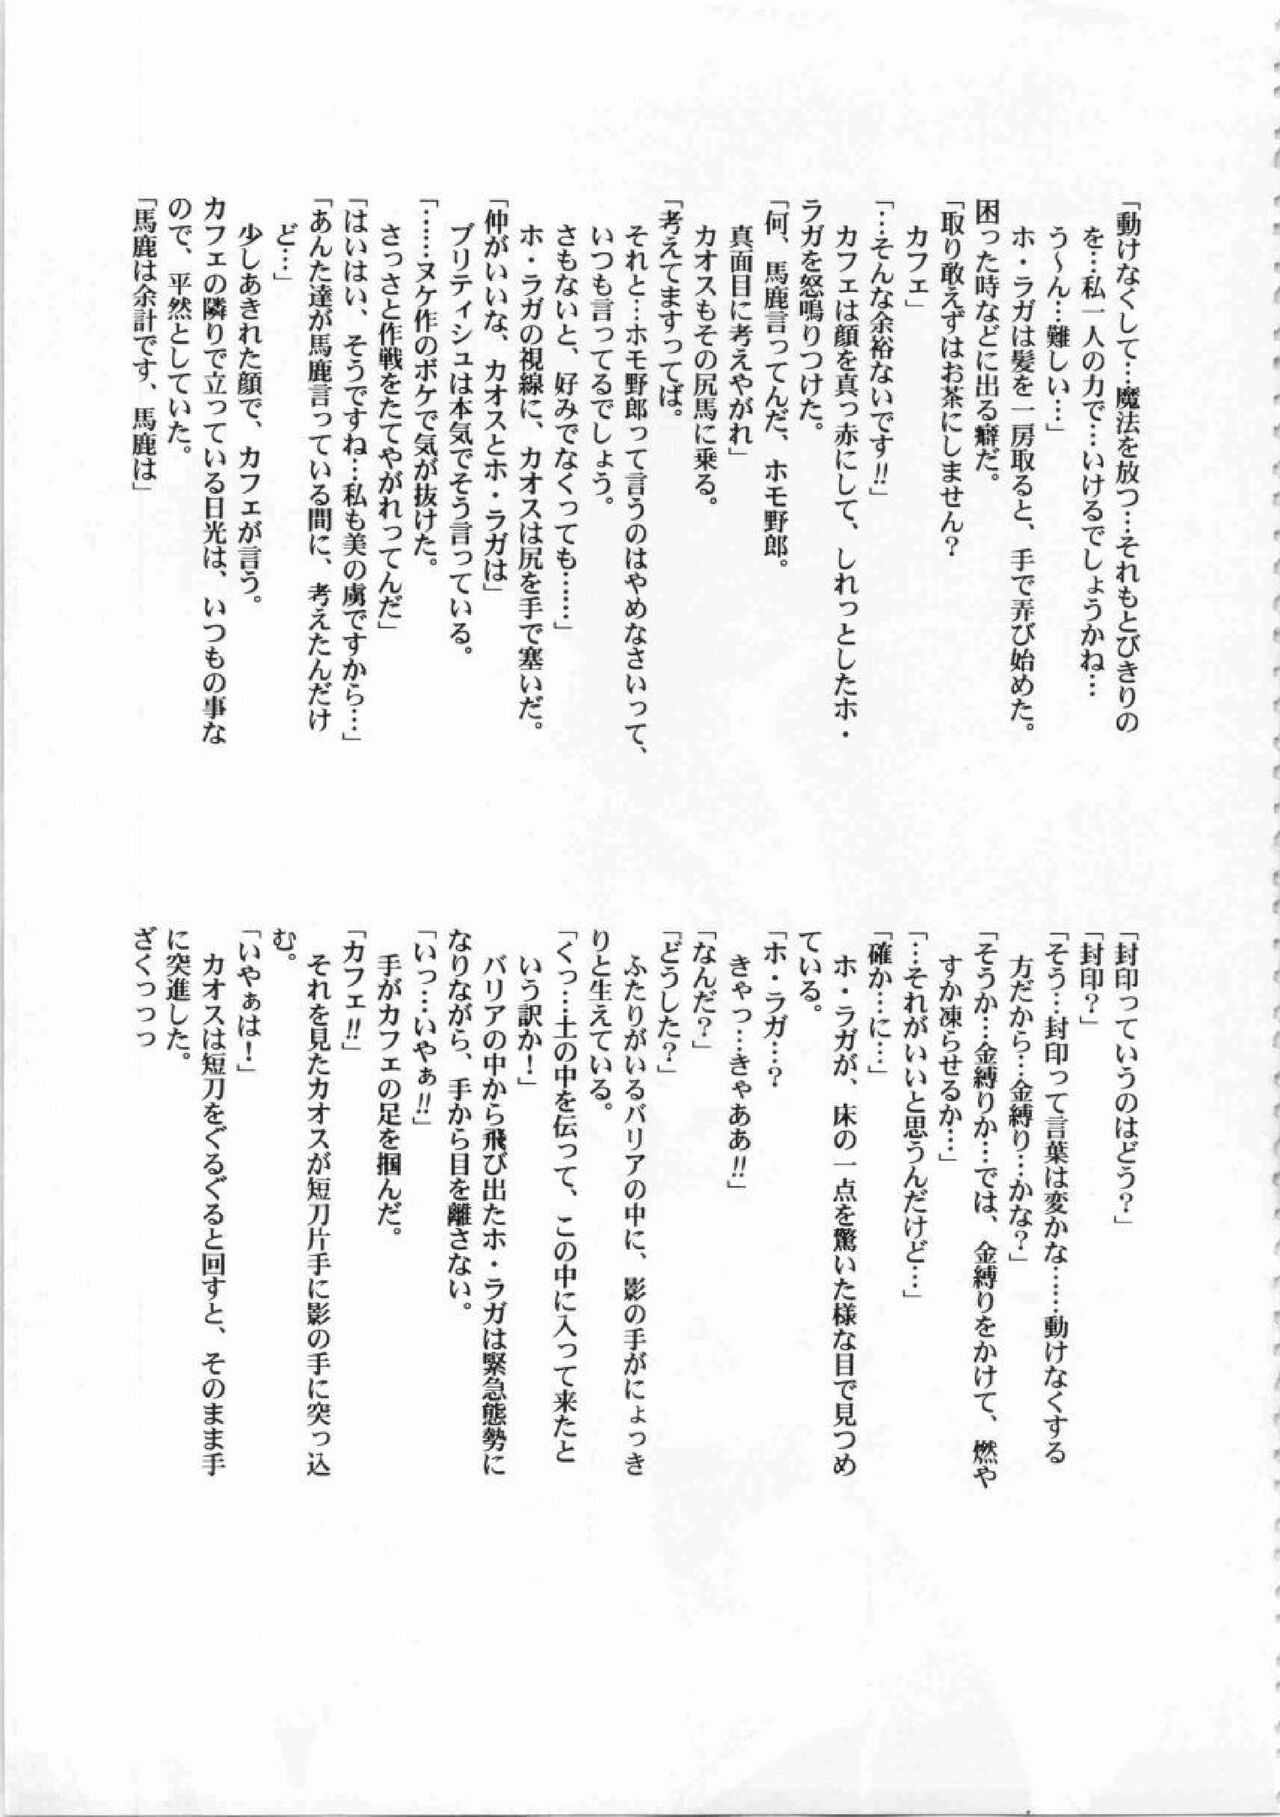 「動けなくして…魔法を放つ…それもとびきりの
を…私一人の力で…いけるでしょうかね…
う〜ん…難しい…」
ホ・ラガは髪を一房取ると、手で弄び始めた。
困った時などに出る癖だ。
「取り敢えずはお茶にしません?
カフェ」
「…そんな余裕ないです!!」
カフェは顔を真っ赤にして、しれっとしたホ・
ラガを怒鳴りつけた。
「何、馬鹿言ってんだ、ホモ野郎。
真面目に考えやがれ」
カオスもその尻馬に乗る。
「考えてますってば。
それと…ホモ野郎って言うのはやめなさいって、
いつも言ってるでしょう。
さもないと、好みでなくっても……」
ホ・ラガの視線に、カオスは尻を手で塞いだ。
「仲がいいな、カオスとホ・ラガは」
ブリティシュは本気でそう言っている。
「……ヌケ作のボケで気が抜けた。
さっさと作戦をたてやがれってんだ」
「はいはい、そうですね…私も美の虜ですから…」
「あんた達が馬鹿言っている間に、考えたんだけ
ど…」
少しあきれた顔で、カフェが言う。
カフェの隣りで立っている日光は、いつもの事な
ので、平然としていた。
「馬鹿は余計です、馬鹿は」
「封印っていうのはどう?」
「封印?」
「そう…封印って言葉は変かな……動けなくする
方だから…金縛り…かな?」
「そうか…金縛りか…では、金縛りをかけて、燃や
すか凍らせるか…」
「…それがいいと思うんだけど…」
「確か…に…」
ホ・ラガが、床の一点を驚いた様な目で見つめ
ている。
「ホ・ラガ…?
きゃっ…きゃああ!!」
「なんだ?」
「どうした?」
ふたりがいるバリアの中に、影の手がにょっき
りと生えている。
「くっ…土の中を伝って、この中に入って来たと
いう訳か!」
バリアの中から飛び出たホ・ラガは緊急態勢に
なりながら、手から目を離さない。
「いっ…いやぁ!!」
手がカフェの足を掴んだ。
「カフェ!!」
それを見たカオスが短刀片手に影の手に突っ込
む。
「いやぁは!」
カオスは短刀をぐるぐると回すと、そのまま手
に突進した。
ざくっっっ